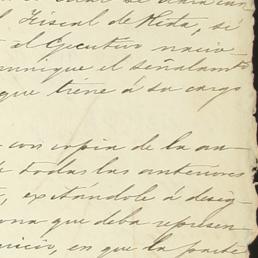 Fiscal de Hda, sí
el Ejecutivo nacio-
munique el señalamto
que tiene á su cargo
con copia de la an-
e todas las anteriores
, exitándole á desig-
ona que deba represen-
nicio, en que la parte